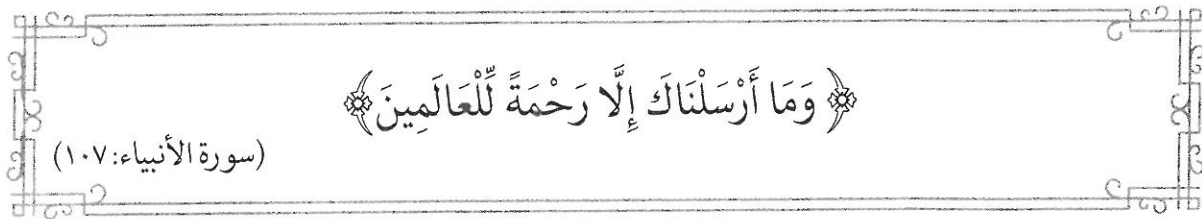 ﴿وَمَا أَرْسَلْنَاكَ إِلَّا رَحْمَةً لِّلْعَالَمِينَ﴾
(سورة الأنبياء: ١٠٧)